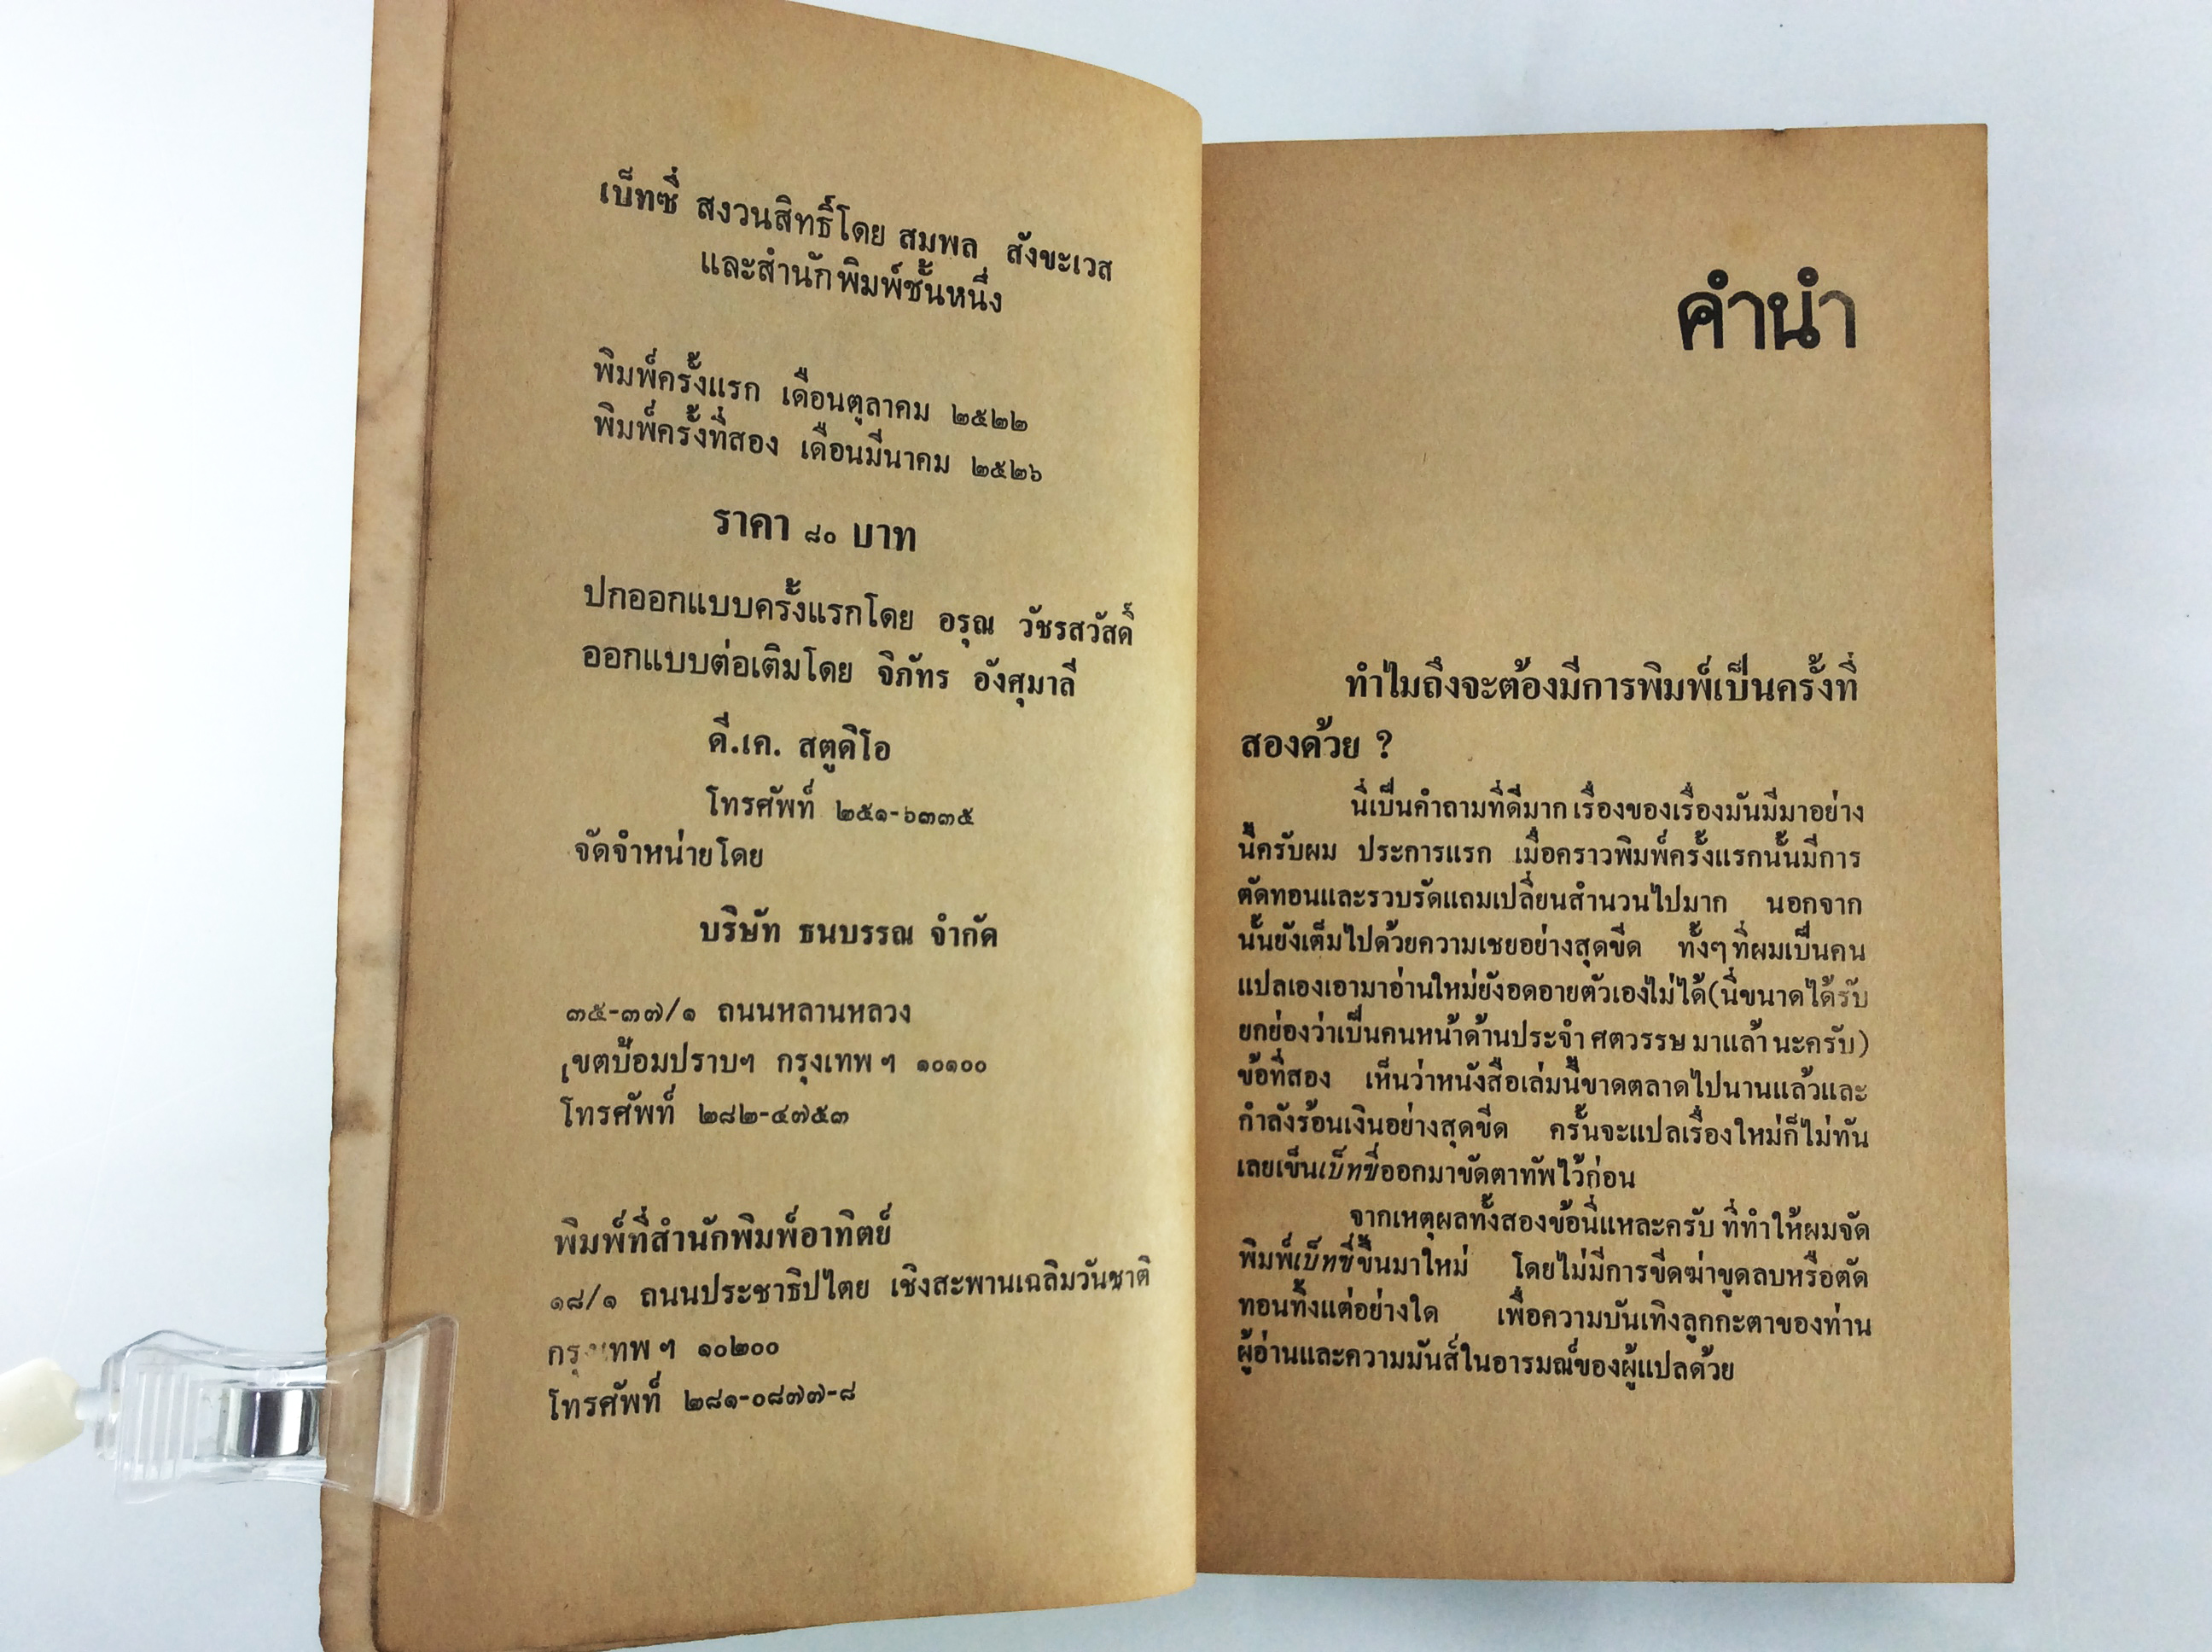 เบ็ทซี่ สงวนสิทธิ์โดย สมพล สังขะเวส
และสำนักพิมพ์ชั้นหนึ่ง
พิมพ์ครั้งแรก เดือนตุลาคม ๒๕๒๒
พิมพ์ครั้งที่สอง เดือนมีนาคม ๒๕๒๖
ราคา ๘๐ บาท
ปกออกแบบครั้งแรกโดย อรุณ วัชรสวัสดิ์
ออกแบบต่อเติมโดย จิภัทร อังศุมาลี
ดี.เค. สตูดิโอ
โทรศัพท์ ๒๕๑-๖๓๓๕
จัดจำหน่ายโดย
บริษัท ธนบรรณ จำกัด
๓๕-๓๗/๑ ถนนหลานหลวง
เขตป้อมปราบฯ กรุงเทพ ฯ ๑๐๑๐๐
โทรศัพท์ ๒๘๒-๔๗๕๓
พิมพ์ที่สำนักพิมพ์อาทิตย์
๑๘/๑ ถนนประชาธิปไตย เชิงสะพานเฉลิมวันชาติ
กรุงเทพ ฯ ๑๐๒๐๐
โทรศัพท์ ๒๘๑-๐๘๗๗-๘
คำนำ
ทำไมถึงจะต้องมีการพิมพ์เป็นครั้งที่
สองด้วย ?
นี่เป็นคำถามที่ดีมาก เรื่องของเรื่องมันมีมาอย่าง
นี้ครับผม ประการแรก เมื่อคราวพิมพ์ครั้งแรกนั้นมีการ
ตัดทอนและรวบรัดแถมเปลี่ยนสำนวนไปมาก นอกจาก
นั้นยังเต็มไปด้วยความเชยอย่างสุดขีด ทั้งๆ ที่ผมเป็นคน
แปลเองเอามาอ่านใหม่ยังอดอายตัวเองไม่ได้(นี่ขนาดได้รับ
ยกย่องว่าเป็นคนหน้าด้านประจำ ศตวรรษ มาแล้า นะครับ)
ข้อที่สอง เห็นว่าหนังสือเล่มนี้ขาดตลาดไปนานแล้วและ
กำลังร้อนเงินอย่างสุดขีด ครั้นจะแปลเรื่องใหม่ก็ไม่ทัน
เลยเข็นเบ็ทซี่ออกมาขัดตาทัพไว้ก่อน
จากเหตุผลทั้งสองข้อนี่แหละครับ ที่ทำให้ผมจัด
พิมพ์เบ็ทซี่ขึ้นมาใหม่ โดยไม่มีการขีดฆ่าขูดลบหรือตัด
ทอนทิ้งแต่อย่างใด เพื่อความบันเทิงลูกกะตาของท่าน
ผู้อ่านและความมันส์ในอารมณ์ของผู้แปลด้วย